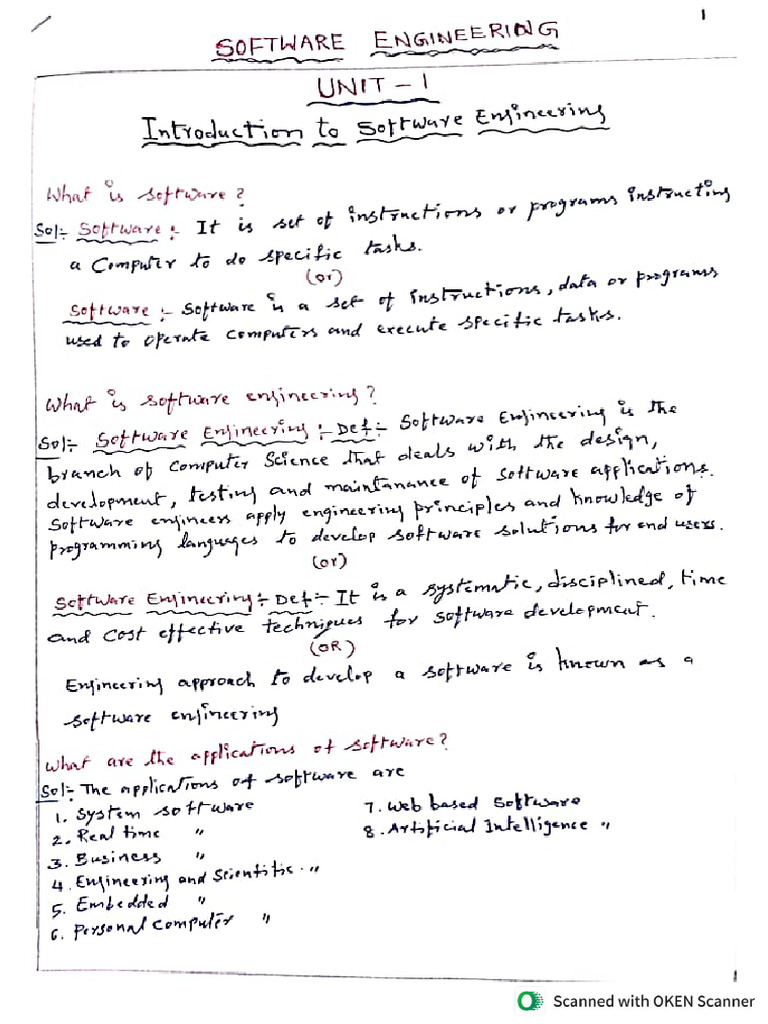 1
SOFTWARE ENGINEERING
UNIT - 1
Introduction to Software Engineering
What is software?
Sol:- Software:- It is set of instructions or programs instructing
a Computer to do specific tasks.
(or)
Software:- Software is a set of instructions, data or programs
used to operate computers and execute specific tasks.
What is software engineering?
Sol:- Software Engineering:- Def:- Software Engineering is the
branch of Computer Science that deals with the design,
development, testing and maintanance of software applications.
Software engineers apply engineering principles and knowledge of
programming languages to develop software solutions for end users.
(or)
Software Engineering:- Def:- It is a systematic, disciplined, time
and cost effective techniques for software development.
(OR)
Engineering approach to develop a software is known as a
software engineering
What are the applications of software?
Sol:- The applications of software are
1. System software
2. Real time "
3. Business "
4. Engineering and Scientific "
5. Embedded "
6. Personal Computer "
7. Web based Software
8. Artificial Intelligence "
Scanned with OKEN Scanner